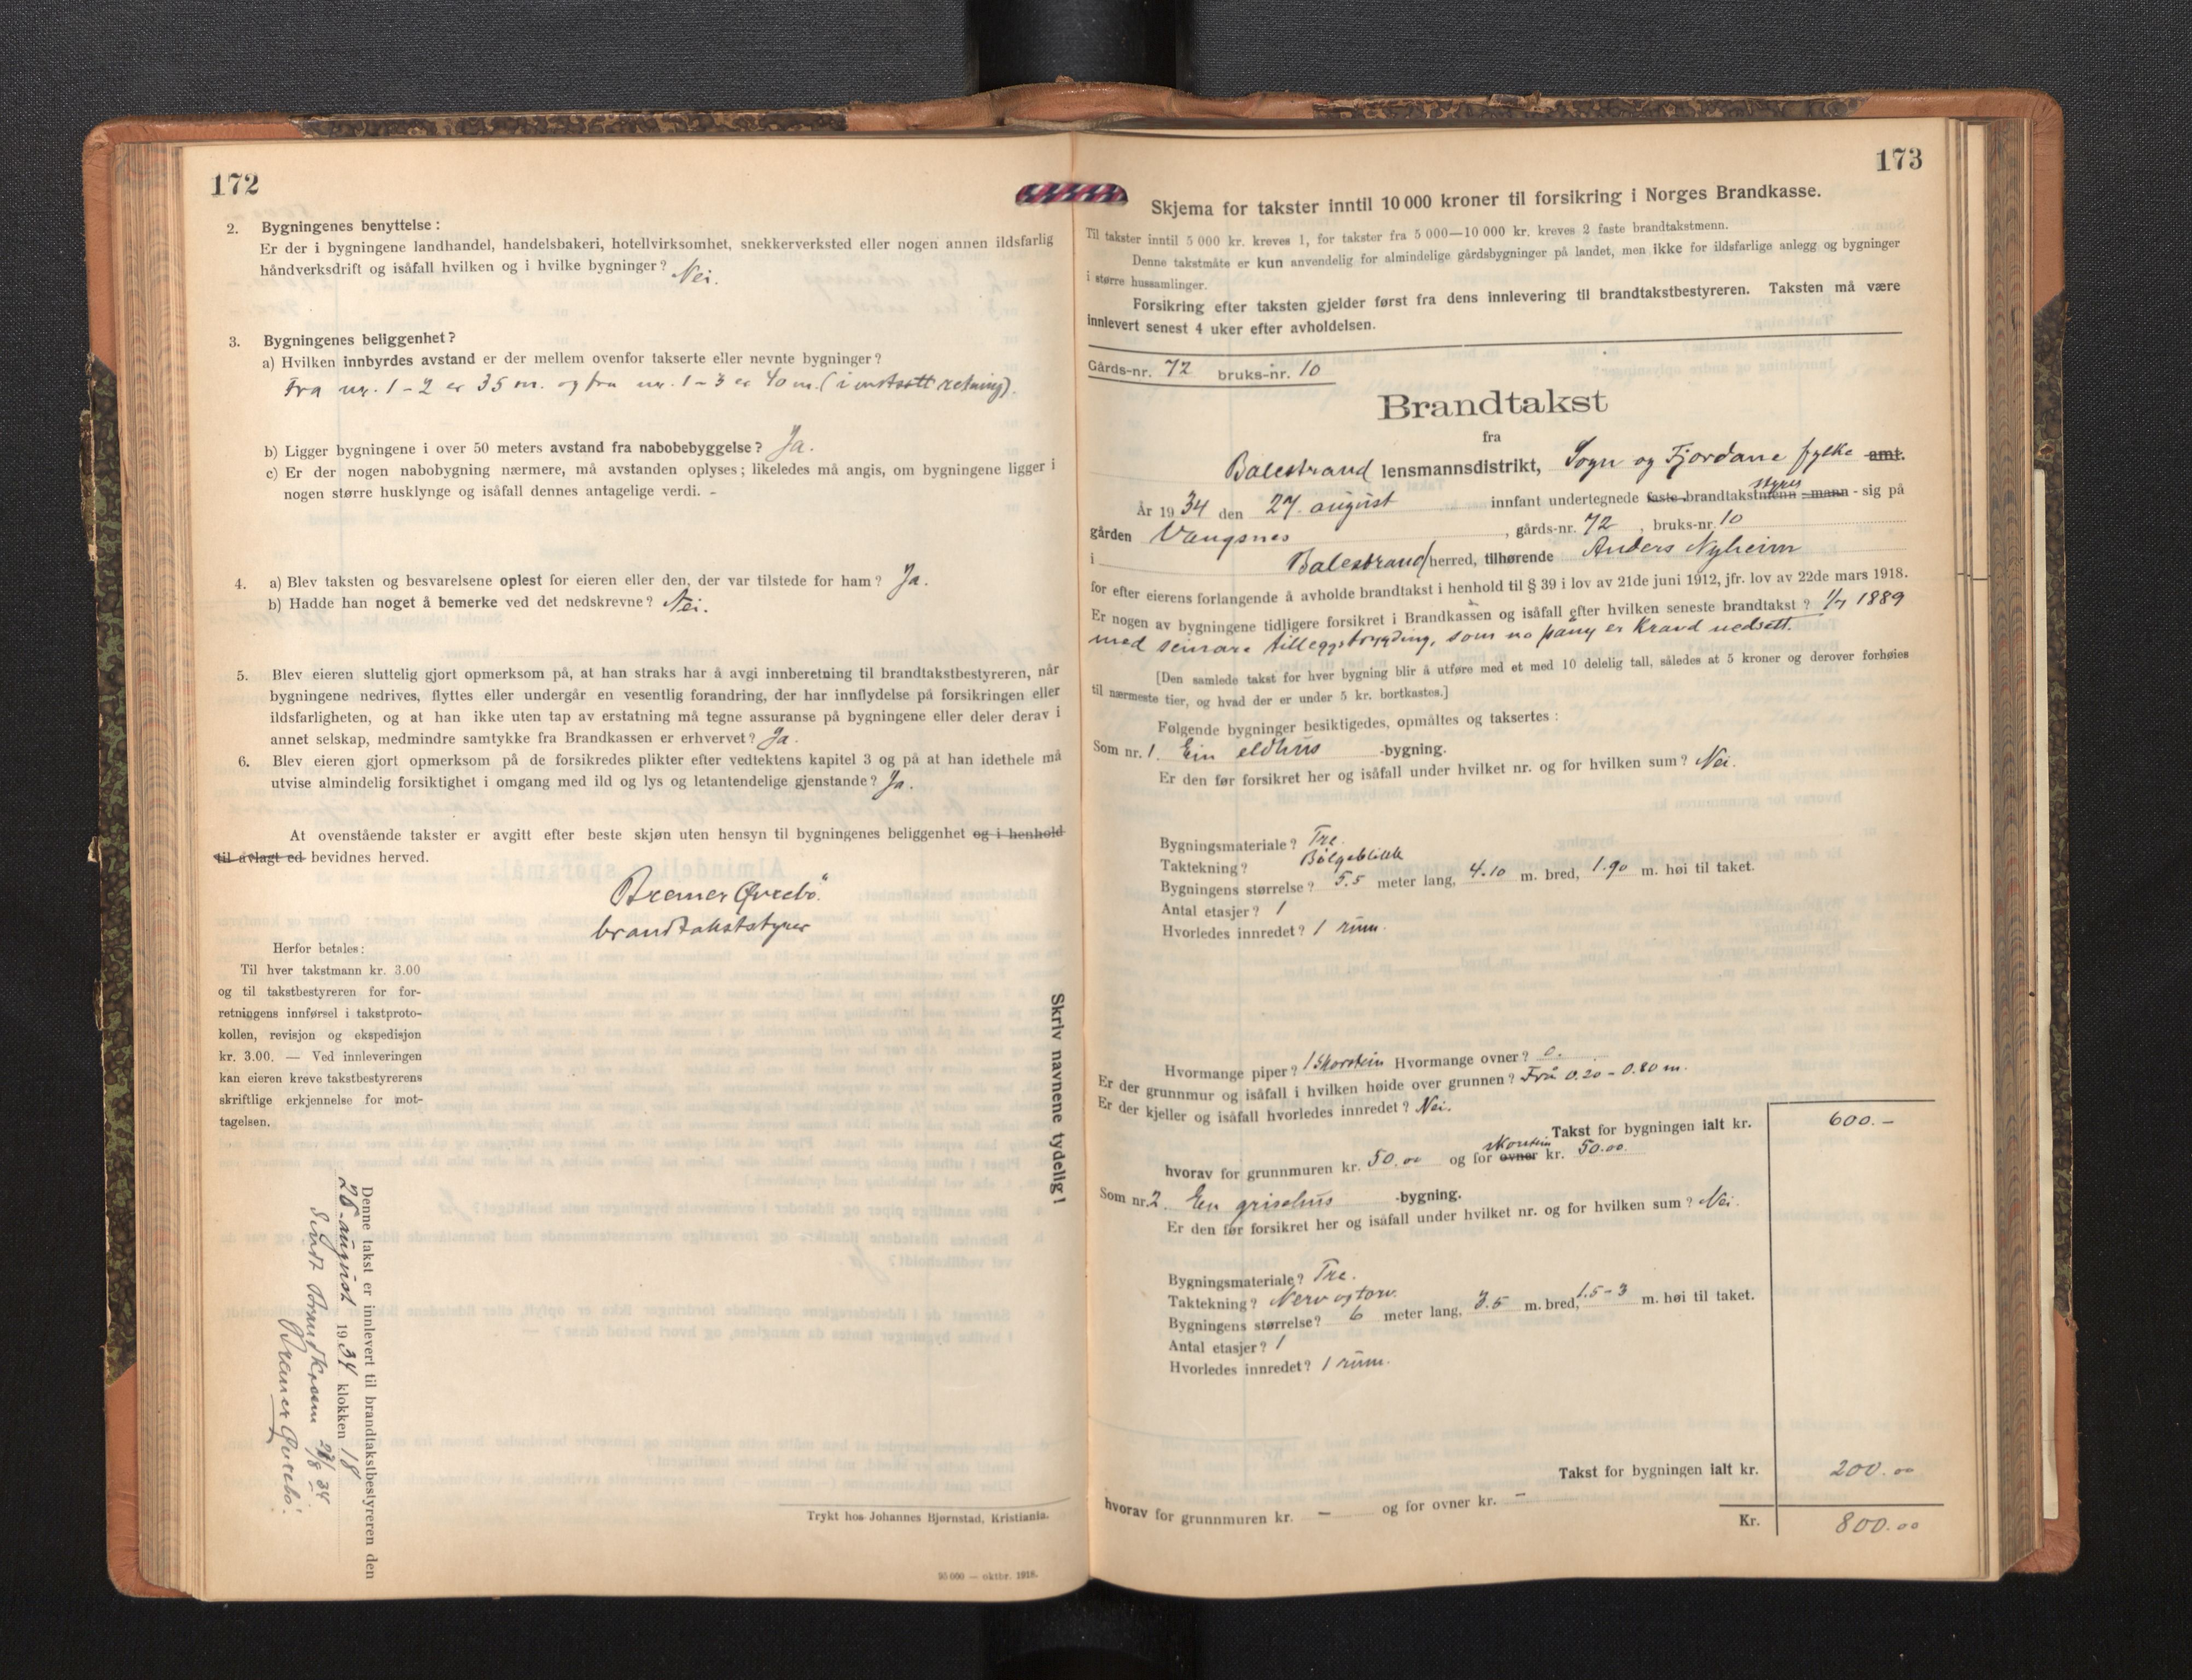 172
2. Bygningenes benyttelse:
Er der i bygningene landhandel, handelsbakeri, hotellvirksomhet, snekkerverksted eller nogen annen ildsfarlig
håndverksdrift og isåfall hvilken og i hvilke bygninger? Nei.
3. Bygningenes beliggenhet?
a) Hvilken innbyrdes avstand er der mellem ovenfor takserte eller nevnte bygninger?
Fra nr. 1-2 er 35 m. og fra nr. 1-3 er 40 m. (i motsatt retning).
b) Ligger bygningene i over 50 meters avstand fra nabobebyggelse? Ja.
c) Er der nogen nabobygning nærmere, må avstanden oplyses; likeledes må angis, om bygningene ligger i
nogen større husklynge og isåfall dennes antagelige verdi. -
4. a) Blev taksten og besvarelsene oplest for eieren eller den, der var tilstede for ham? Ja.
b) Hadde han noget å bemerke ved det nedskrevne? Nei.
5. Blev eieren sluttelig gjort opmerksom på, at han straks har å avgi innberetning til brandtakstbestyreren, når
bygningene nedrives, flyttes eller undergår en vesentlig forandring, der har innflydelse på forsikringen eller
ildsfarligheten, og at han ikke uten tap av erstatning må tegne assuranse på bygningene eller deler derav i
annet selskap, medmindre samtykke fra Brandkassen er erhvervet? Ja.
6. Blev eieren gjort opmerksom på de forsikredes plikter efter vedtektens kapitel 3 og på at han idethele må
utvise almindelig forsiktighet i omgang med ild og lys og letantendelige gjenstande? Ja.
At ovenstående takster er avgitt efter beste skjøn uten hensyn til bygningenes beliggenhet og i henhold
til avlagt ed bevidnes herved.
Bremer Øvrebö.
brandtakststyrer
Herfor betales:
Til hver takstmann kr. 3.00
og til takstbestyreren for for-
retningens innførsel i takstproto-
kollen, revisjon og ekspedisjon
kr. 3.00. — Ved innleveringen
kan eieren kreve takstbestyrerens
skriftlige erkjennelse for mot-
tagelsen.
Skriv navnene tydelig!
Denne takst er innlevert til brandtakstbestyreren den
28 august 1934 klokken 18
Sendt Brandkassen 28/8 34
Bremer Øvrebö.
Trykt hos Johannes Bjørnstad, Kristiania.
30 000 — oktbr. 1918.
173
Skjema for takster inntil 10 000 kroner til forsikring i Norges Brandkasse.
Til takster inntil 5 000 kr. kreves 1, for takster fra 5 000—10 000 kr. kreves 2 faste brandtakstmenn.
Denne takstmåte er kun anvendelig for almindelige gårdsbygninger på landet, men ikke for ildsfarlige anlegg og bygninger
i større hussamlinger.
Forsikring efter taksten gjelder først fra dens innlevering til brandtakstbestyreren. Taksten må være
innlevert senest 4 uker efter avholdelsen.
Gårds-nr. 72 bruks-nr. 10
Brandtakst
fra
Balestrand lensmannsdistrikt, Sogn og Fjordane fylke amt.
År 1934 den 27. august innfant undertegnede faste brandtakstmenn -mann styrer - sig på
gården Vangsnes, gårds-nr. 72, bruks-nr. 10
i Balestrand herred, tilhørende Anders Nyheim
for efter eierens forlangende å avholde brandtakst i henhold til § 39 i lov av 21de juni 1912, jfr. lov av 22de mars 1918.
Er nogen av bygningene tidligere forsikret i Brandkassen og isåfall efter hvilken seneste brandtakst? 1/7 1889
med seinare tilleggstrygding, som no påny er kravd nedsett.
[Den samlede takst for hver bygning blir å utføre med et med 10 delelig tall, således at 5 kroner og derover forhøies
til nærmeste tier, og hvad der er under 5 kr. bortkastes.]
Følgende bygninger besiktigedes, opmåltes og taksertes:
Som nr. 1. Ein eldhus -bygning.
Er den før forsikret her og isåfall under hvilket nr. og for hvilken sum? Nei.
Bygningsmateriale? Tre.
Taktekning? Bølgeblikk
Bygningens størrelse? 5.5 meter lang, 4.10 m. bred, 1.90 m. høi til taket.
Antal etasjer? 1
Hvorledes innredet? 1 rum.
Hvormange piper? 1 Skorstein Hvormange ovner? 0.
Er der grunnmur og isåfall i hvilken høide over grunnen? Frå 0.20 - 0.80 m.
Er der kjeller og isåfall hvorledes innredet? Nei.
Takst for bygningen ialt kr. 600.-
hvorav for grunnmuren kr. 50.00 og for ovner skorstein kr. 50.00.
Som nr. 2. En grisehus -bygning.
Er den før forsikret her og isåfall under hvilket nr. og for hvilken sum? Nei.
Bygningsmateriale? Tre.
Taktekning? Nerv og torv.
Bygningens størrelse? 6 meter lang, 3.5 m. bred, 1.5-3 m. høi til taket.
Antal etasjer? 1
Hvorledes innredet? 1 rum.
Takst for bygningen ialt kr. 200.00
hvorav for grunnmuren kr. - og for ovner kr. -
Kr. 800.00